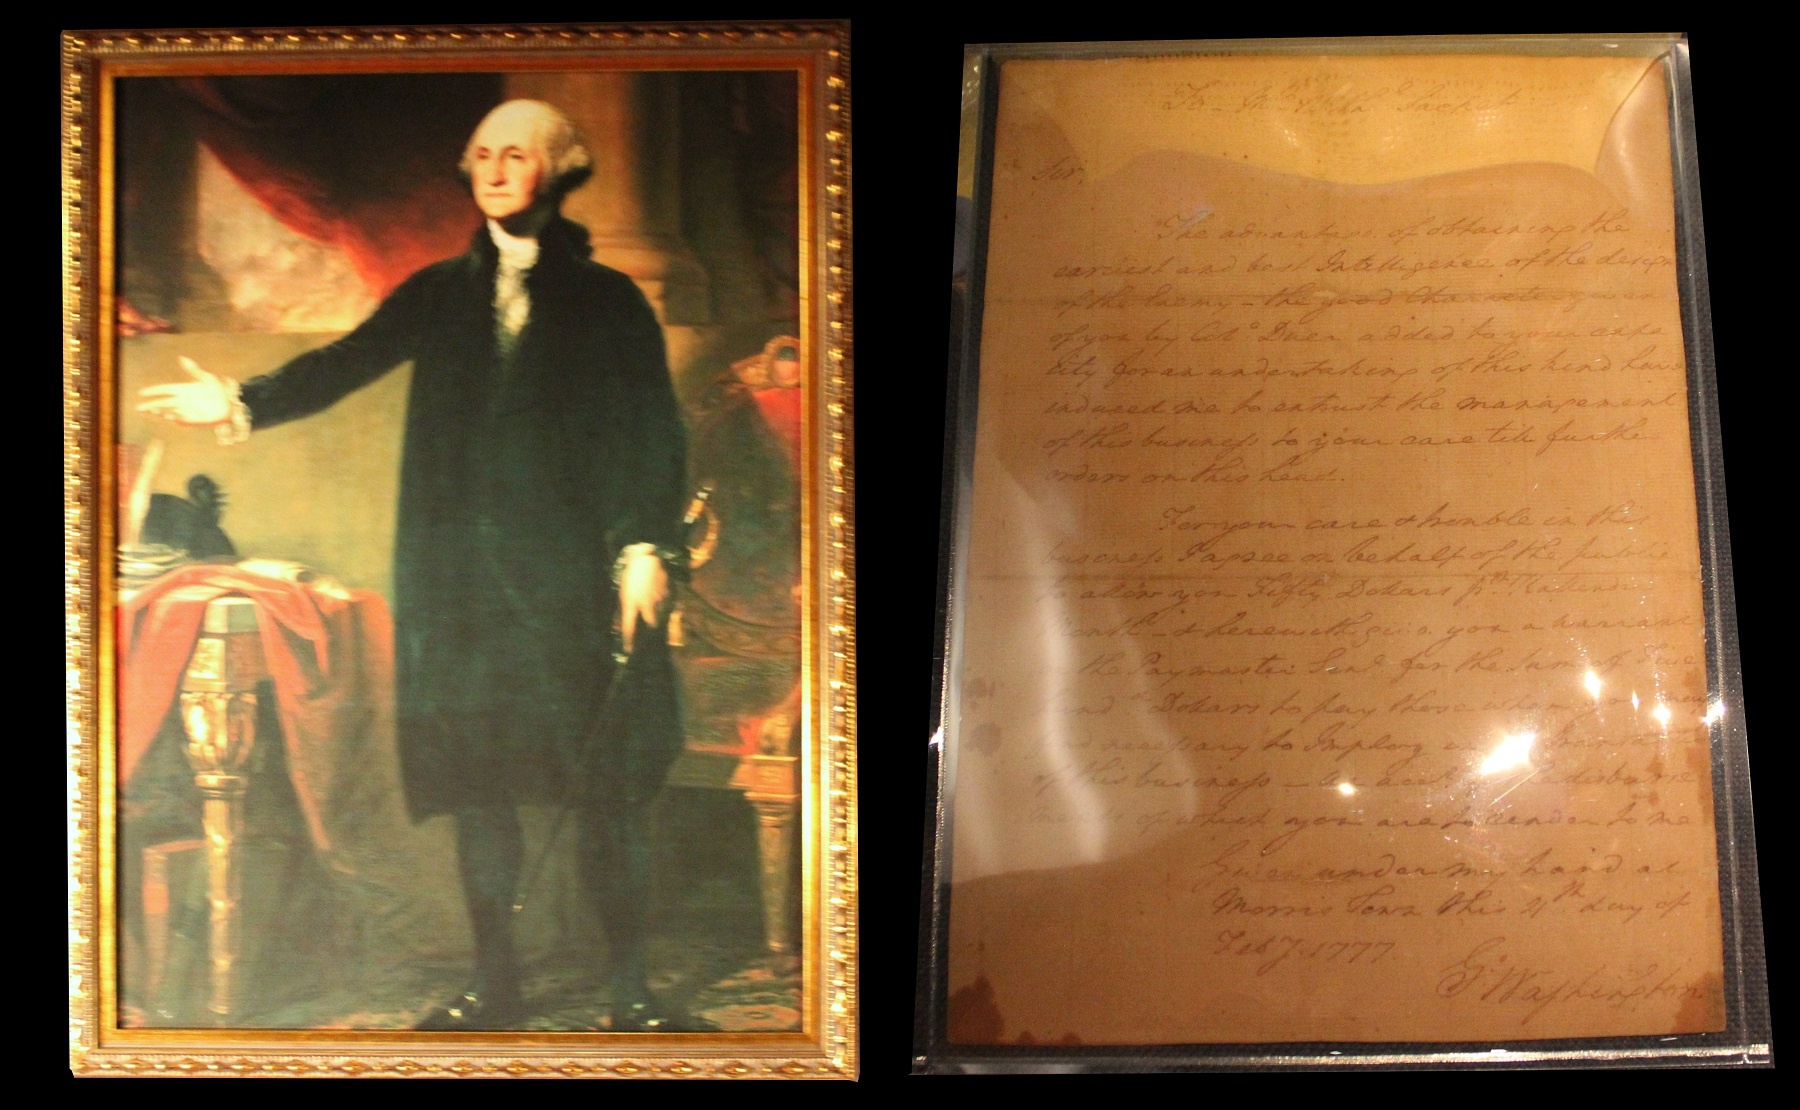 To - Mr. Nath Sacket
Sir,
The advantage of obtaining the
earliest and best Intelligence of the design
of the Enemy - the good Character given
of you by Colo. Duer added to your capa
city for an undertaking of this kind have
induced me to entrust the management
of this business to your care till further
orders on this head.
For your care & trouble in this
business I agree on behalf of the public
to allow you Fifty Dollars pr. Kalendr.
Month - & herewith give you a warrant
the Paymaster Genl for the sum of Five
hund d Dollars to pay those whom you may
find necessary to Imploy in the transacti
of this business - an acct of the disburse
ments of which you are to render to me
Given under my hand at
Morris Town this 4th day of
Feby. 1777.
Go. Washington.